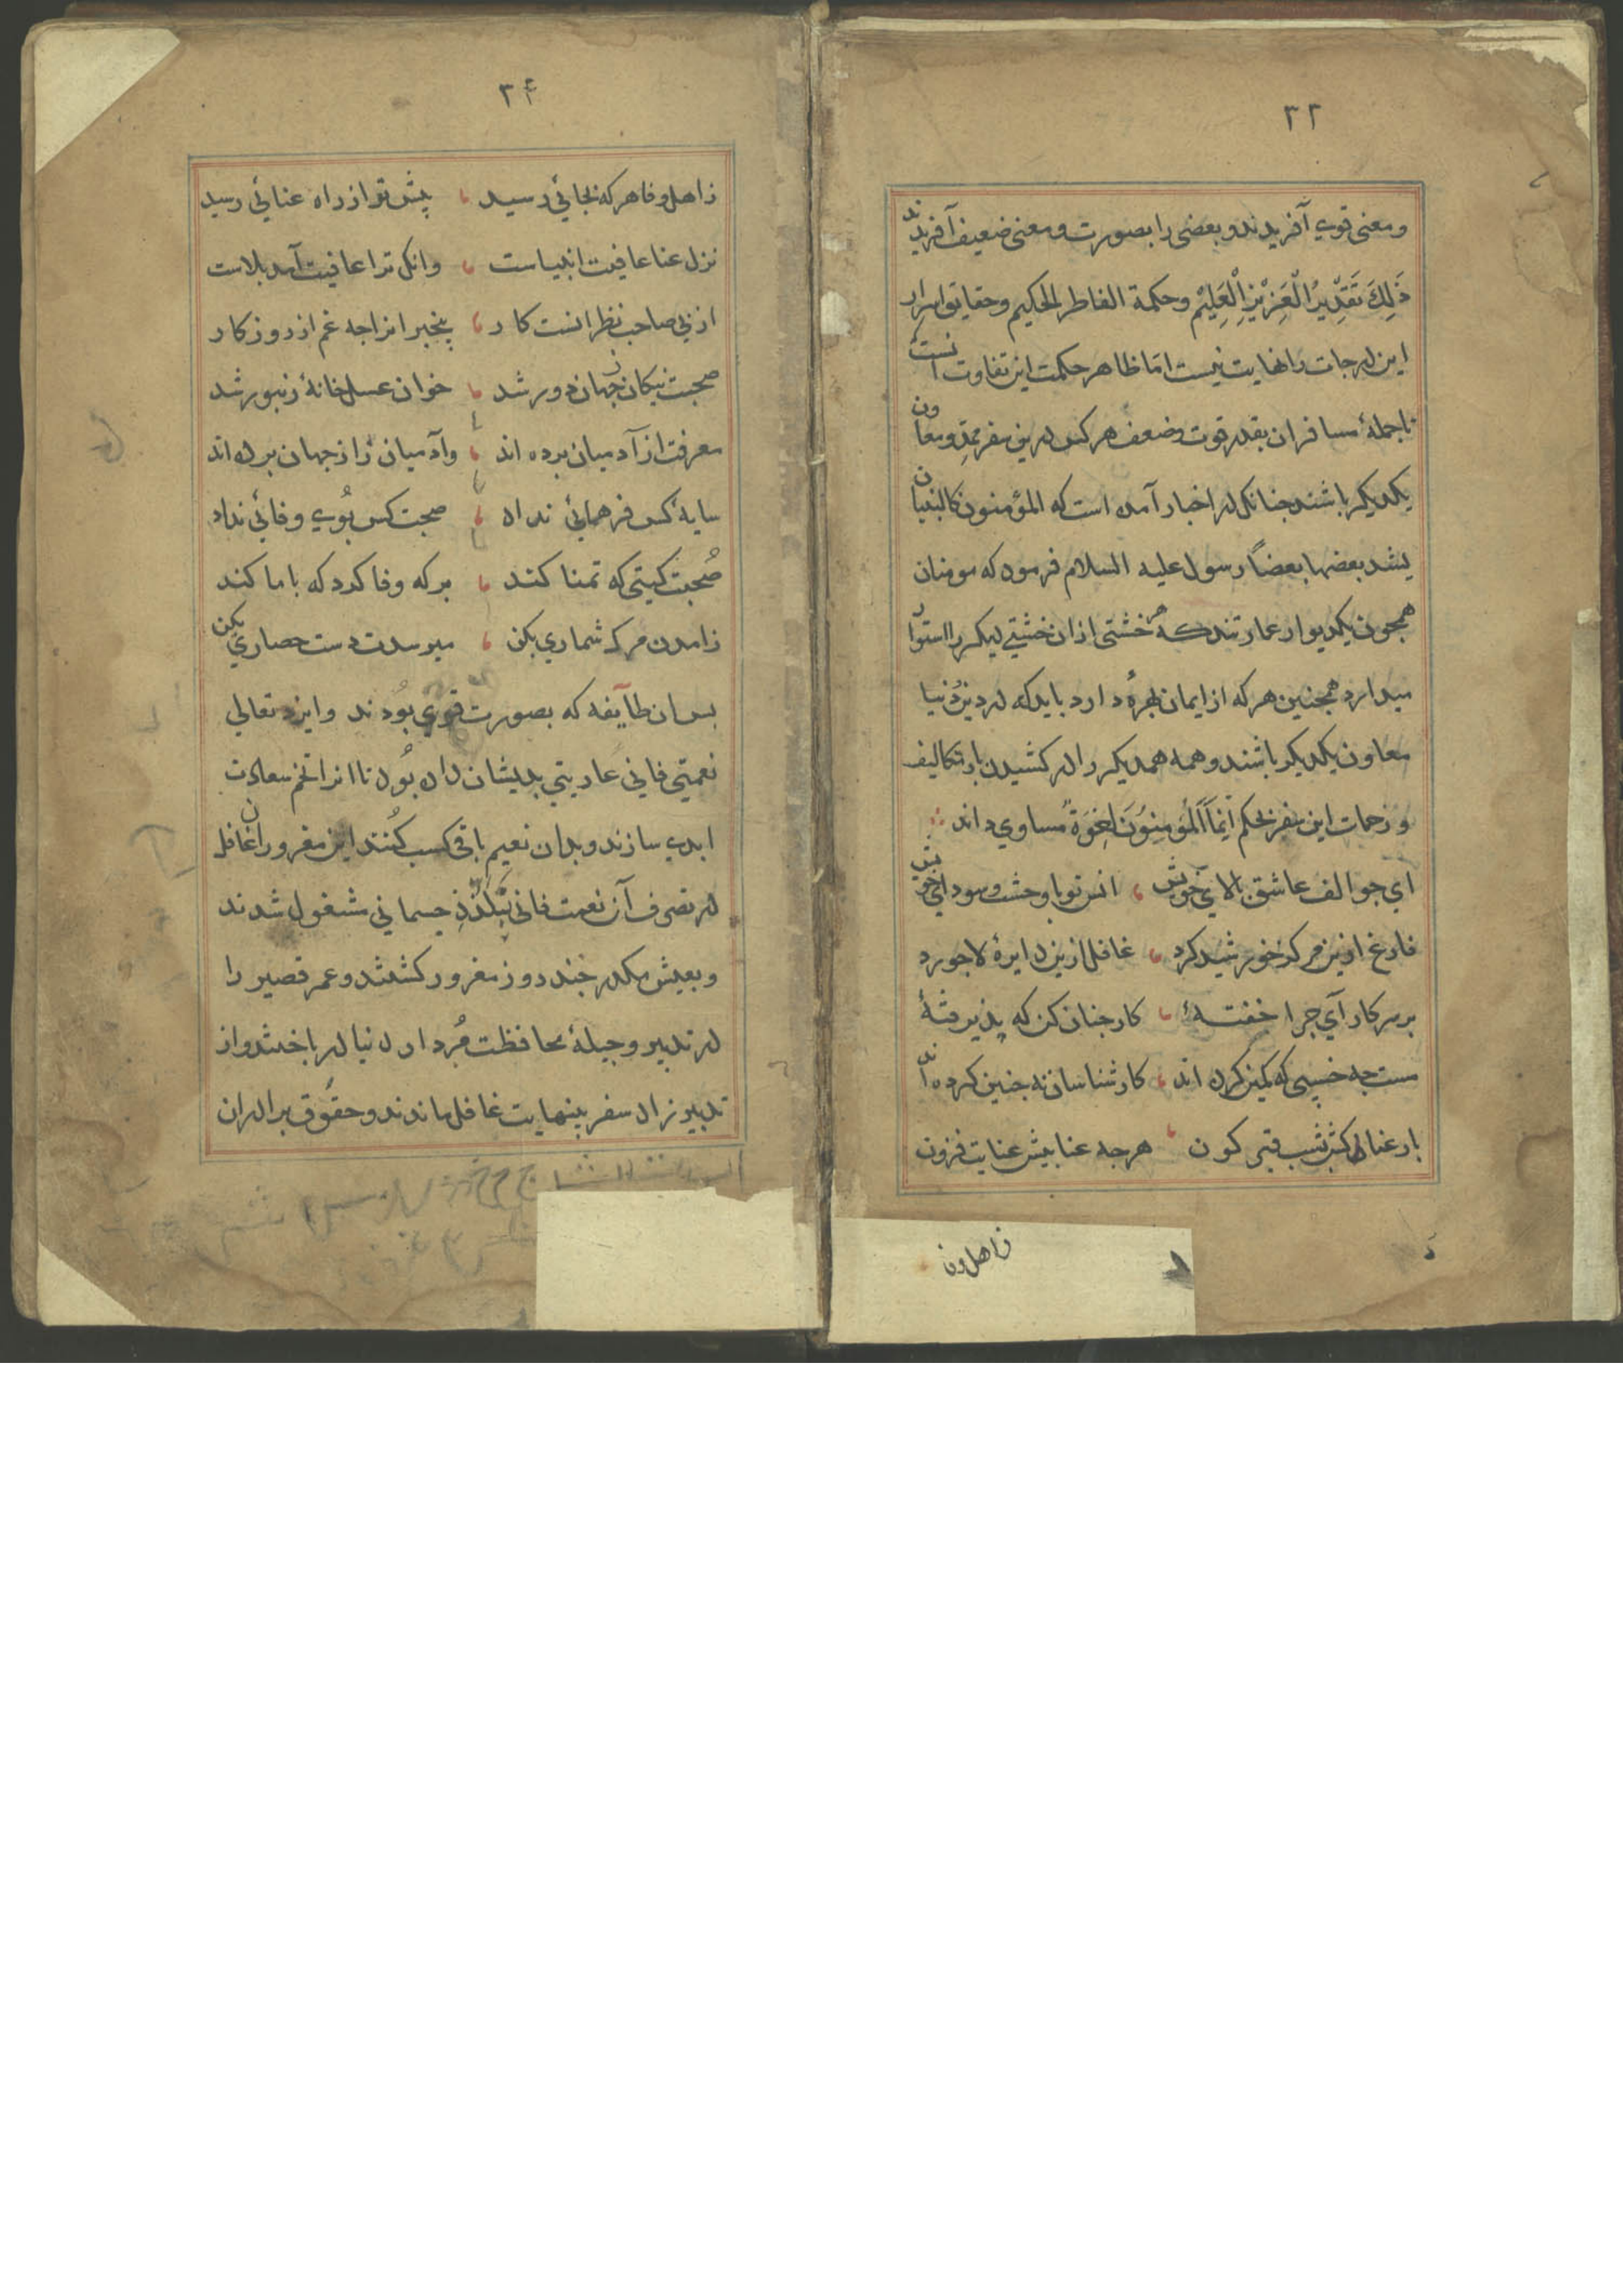 ۳۲
ومعنی قوی آفریدند و بعضی را بصورت و معنی ضعیف آفریدند
ذَلِكَ تَقْدِیرُ الْعَزِیْزِ الْعَلِیْمِ وحکمة الفاطر الحکیم وحقایق اسرار
این درجات را نهایت نیست امّا ظاهر حکمت این تفاوت آنست
تا جملهٔ مسافران بقدر قوت وضعف هرکس درین سفر ممدّ و معاون
یکدیکر باشند جنانکه در اخبار آمده است که المؤمنون کالبنیان
یشد بعضها بعضاً رسول علیه السلام فرمود که مومنان
همجون یکدیوار عمارتند که هر خشتی ازان خشتی دیکر را استوار
میدارد همجنین هرکه از ایمان بهرهٔ دارد باید که در دین و دنیا
معاون یکدیکر باشند و همه همدیکر را در کشیدن بار تکالیف
و زحمات این سفر بحکم اِنّمَا اَلمُؤمِنِوُنَ اِخوَةٌ مساوی داند
ای جو الف عاشق بالای خویش انس تو با وحشت و سودای خویش
فارغ ازین مرکز خورشید کرد غافل ازین دایرهٔ لاجورد
بر سر کار آی جرا خفتهٔ کار جنان کن که پذیرفتهٔ
مست جه خسپی که کمین کرده اند کارشناسان نه جنین کرده اند
بار عنا کش بشب قیر کون هرجه عنا بیش عنایت فزون
زاهل وفا
۳۴
زاهل وفا هرکه بجائی رسید پیش تر از راه عنائی رسید
نزل عنا عافیت انبیاست وانکه ترا عافیت آمد بلاست
از پی صاحب نظرانست کار بیخبرانرا جه غم از روزکار
صحبت نیکان ز جهان دور شد خوان عسل خانهٔ زنبور شد
معرفت از آدمیان برده اند وآدمیان را ز جهان برده اند
سایهٔ کس فر همائی نداد صحبت کس بوُی وفائی نداد
صُحبت کیتی که تمنا کند برکه وفا کرد که با ما کند
زامدن مرک شماری بکن میرسدت دست حصاری بکن
بس ان طآیفه که بصورت قوی بوُدند وایزد تعالی
نعمتی فانی عاریتی بدیشان داد بوُد تا انرا تخم سعادت
ابدی سازند و بدان نعیم باقی کسب کُنند این مغروران غافل
در تصرف آن نعمت فانی بتلذذ جسمانی مشغول شدند
و بعیش مکدر جند روز مغرور کشتند و عمر قصیر را
در تدبیر و حیلهٔ محافظت مُردار دنیا در باختند و از
تدبیر زاد سفر بینهایت غافل ماندند و حقوُق برادران